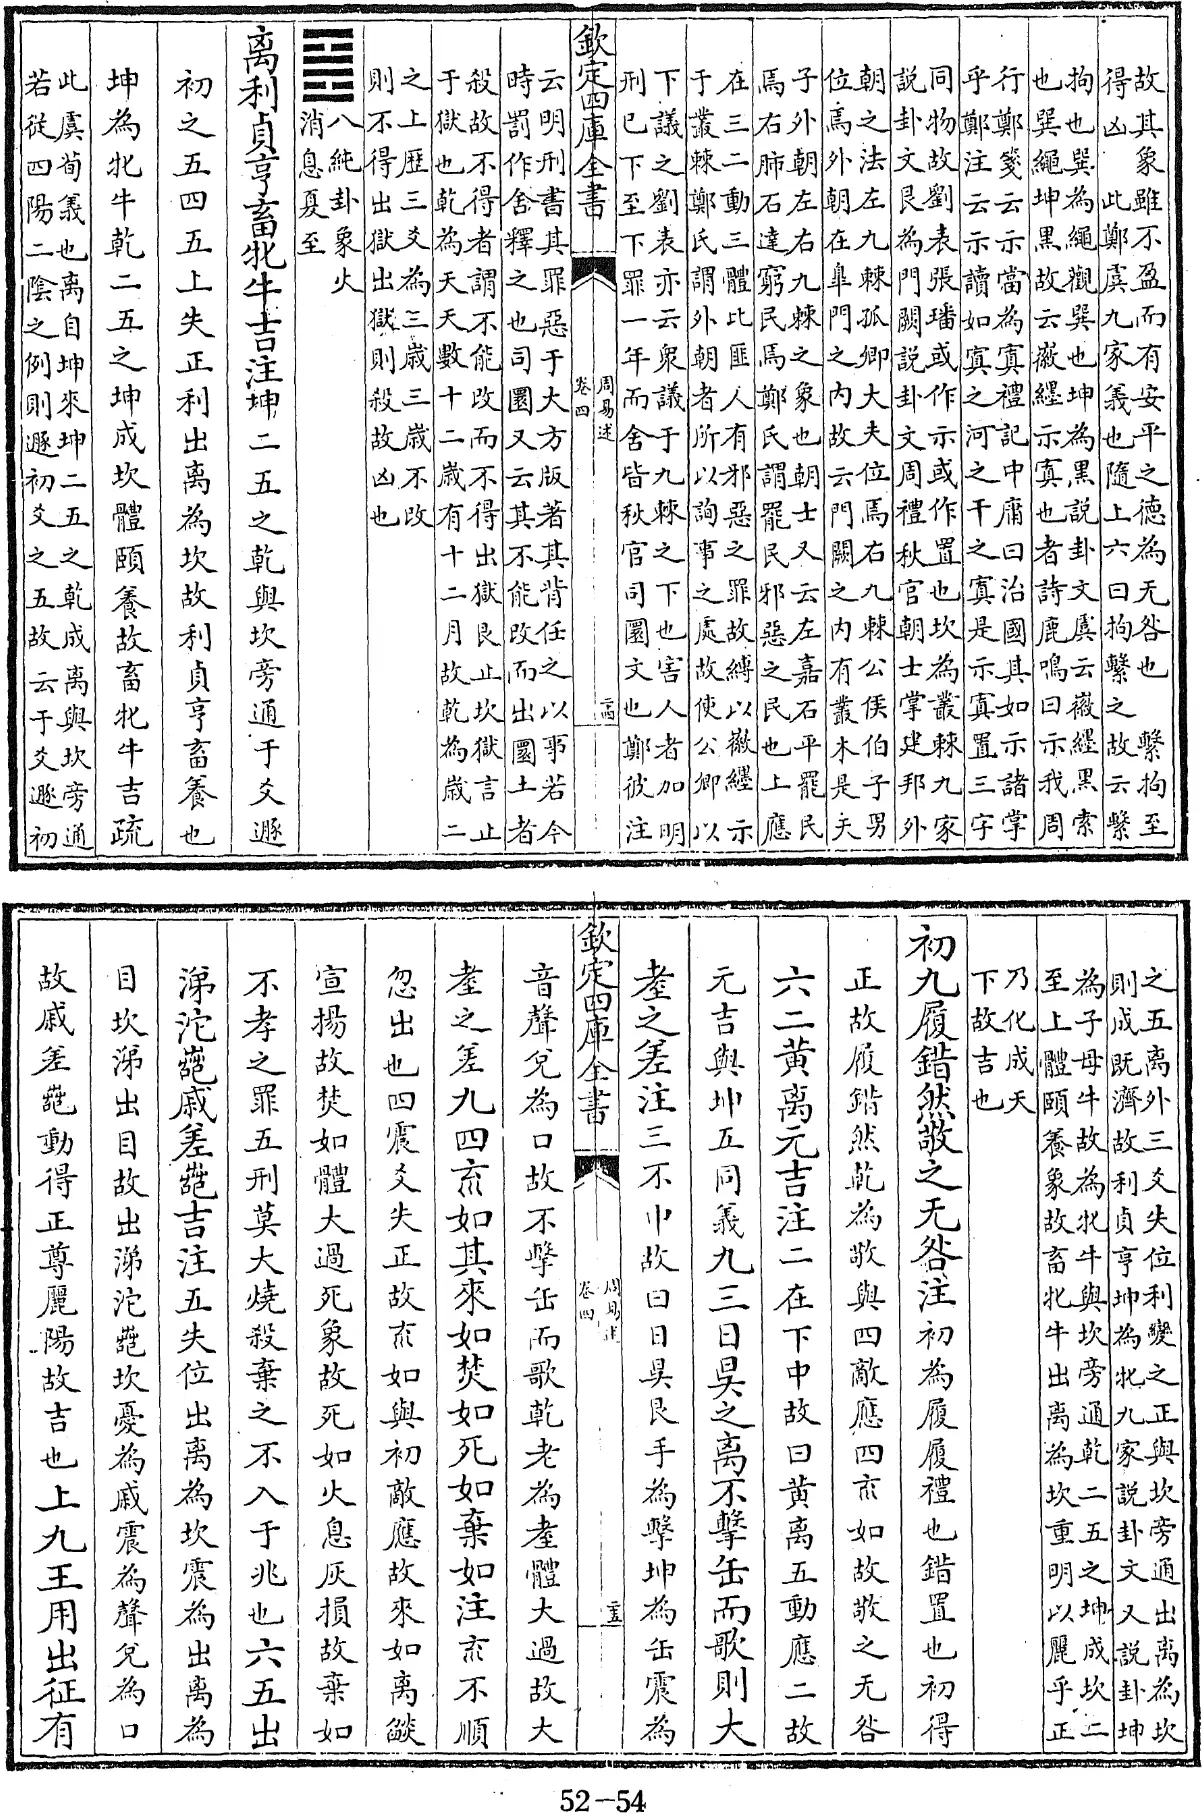 故其象雖不盈而有安平之德為无咎也　繫拘至
得凶　此鄭虞九家義也隨上六曰拘繫之故云繫
拘也巽為繩觀巽也坤為黑說卦文虞云徽纆黑索
也巽繩坤黑故云徽纆示寘也者詩鹿鳴曰示我周
行鄭箋云示當為寘禮記中庸曰治國其如示諸掌
乎鄭注云示讀如寘之河之干之寘是示寘置三字
同物故劉表張璠或作示或作置也坎為叢棘九家
說卦文艮為門闕說卦文周禮秋官朝士掌建邦外
朝之法左九棘孤卿大夫位焉右九棘公侯伯子男
位焉外朝在臯門之內故云門闕之內有叢木是天
子外朝左右九棘之象也朝士又云左嘉石平罷民
焉右肺石達窮民焉鄭氏謂罷民邪惡之民也上應
在三二動三體此匪人有邪惡之罪故縛以徽纆示
于叢棘鄭氏謂外朝者所以詢事之處故使公卿以
下議之劉表亦云衆議于九棘之下也害人者加明
刑已下下至下罪一年而舍皆秋官司圜文也鄭彼注
欽定四庫全書
周易述
卷四
二十四
云明刑書其罪惡于大方版著其背任之以事若今
時罰作舍釋之也司圜又云其不能改而出圜土者
殺故不得者謂不能改而不得出獄艮止坎獄言止
于獄也乾為天天數十二歲有十二月故乾為歲二
之上歷三爻為三歲三歲不改
則不得出獄出獄則殺故凶也
八純卦象火
消息夏至
离利貞亨畜牝牛吉注坤二五之乾與坎旁通于爻遯
初之五四五上失正利出离為坎故利貞亨畜養也
坤為牝牛乾二五之坤成坎體頤養故畜牝牛吉疏
此虞荀義也离自坤來坤二五之乾成离與坎旁通
若從四陽二陰之例則遯初爻之五故云于爻遯初
之五离外三爻失位利變之正與坎旁通出离為坎
則成既濟故利貞亨坤為牝九家說卦文又說卦坤
為子母牛故為牝牛與坎旁通乾二五之坤成坎二
至上體頤養象故畜牝牛出离為坎重明以麗乎正
乃化成天
下故吉也
初九履錯然敬之无咎注初為履履禮也錯置也初得
正故履錯然乾為敬與四敵應四㐬如故敬之无咎
六二黃离元吉注二在下中故曰黃离五動應二故
元吉與坤五同義九三日昃之离不擊缶而歌則大
耋之差注三不中故曰日昃艮手為擊坤為缶震為
欽定四庫全書
周易述
卷四
二十五
音聲兌為口故不擊缶而歌乾老為耋體大過故大
耋之差九四㐬如其來如焚如死如棄如注㐬不順
忽出也四震爻失正故㐬如與初敵應故來如离燄
宣揚故焚如體大過死象故死如火息灰損故棄如
不孝之罪五刑莫大燒殺棄之不入于兆也六五出
涕沱𦫼戚差𦫼吉注五失位出离為坎震為出离為
目坎涕出目故出涕沱𦫼坎憂為戚震為聲兌為口
故戚差𦫼動得正尊麗陽故吉也上九王用出征有
52—54